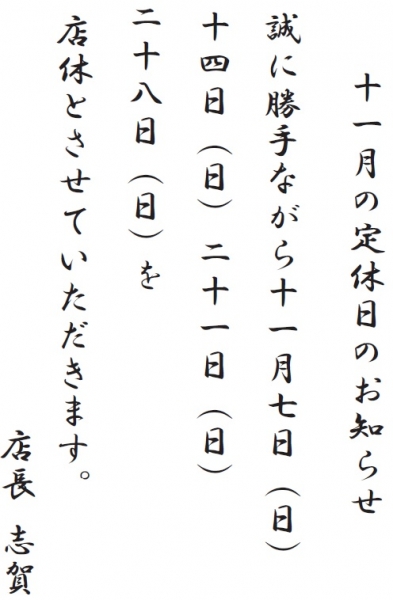 十一月の定休日のお知らせ
誠に勝手ながら十一月七日（日）
十四日（日）二十一日（日）
二十八日（日）を
店休とさせていただきます。
店長 志賀